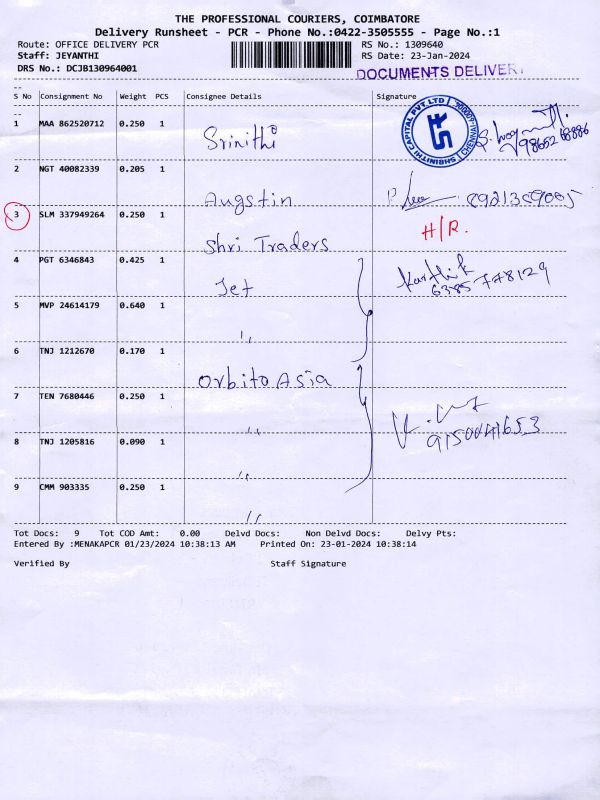 THE PROFESSIONAL COURIERS, COIMBATORE
Delivery Runsheet - PCR - Phone No.:0422-3505555 - Page No.:1
Route: OFFICE DELIVERY PCR RS No.: 1309640
Staff: JEYANTHI RS Date: 23-Jan-2024
DRS No.: DCJB130964001
DOCUMENTS DELIVERY
--
S No Consignment No Weight PCS Consignee Details Signature
--
1 MAA 862520712 0.250 1 Srinithi
SHRINITHI CAPITAL PVT LTD CHENNAI
9865268886
2 NGT 40082339 0.205 1 Augstin
8921389005
3 SLM 337949264 0.250 1 Shri Traders H/R.
4 PGT 6346843 0.425 1 Jet Karthik
6385778129
5 MVP 24614179 0.640 1 "
6 TNJ 1212670 0.170 1 Orbito Asia
7 TEN 7680446 0.250 1 "
9150041653
8 TNJ 1205816 0.090 1 "
9 CMM 903335 0.250 1 "
Tot Docs: 9 Tot COD Amt: 0.00 Delvd Docs: Non Delvd Docs: Delvy Pts:
Entered By :MENAKAPCR 01/23/2024 10:38:13 AM Printed On: 23-01-2024 10:38:14
Verified By Staff Signature